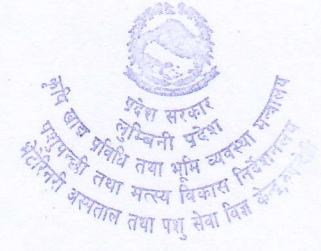 प्रदेश सरकार
लुम्बिनी प्रदेश
कृषि खाद्य प्रविधि तथा भूमि व्यवस्था मन्त्रालय
पशुपन्छी तथा मत्स्य विकास निर्देशनालय
भेटेरिनरी अस्पताल तथा पशु सेवा विज्ञ केन्द्र